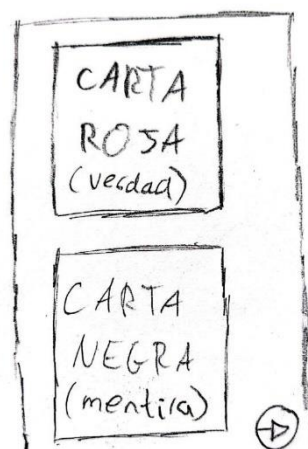 CARTA
ROJA
(verdad)
CARTA
NEGRA
(mentira)